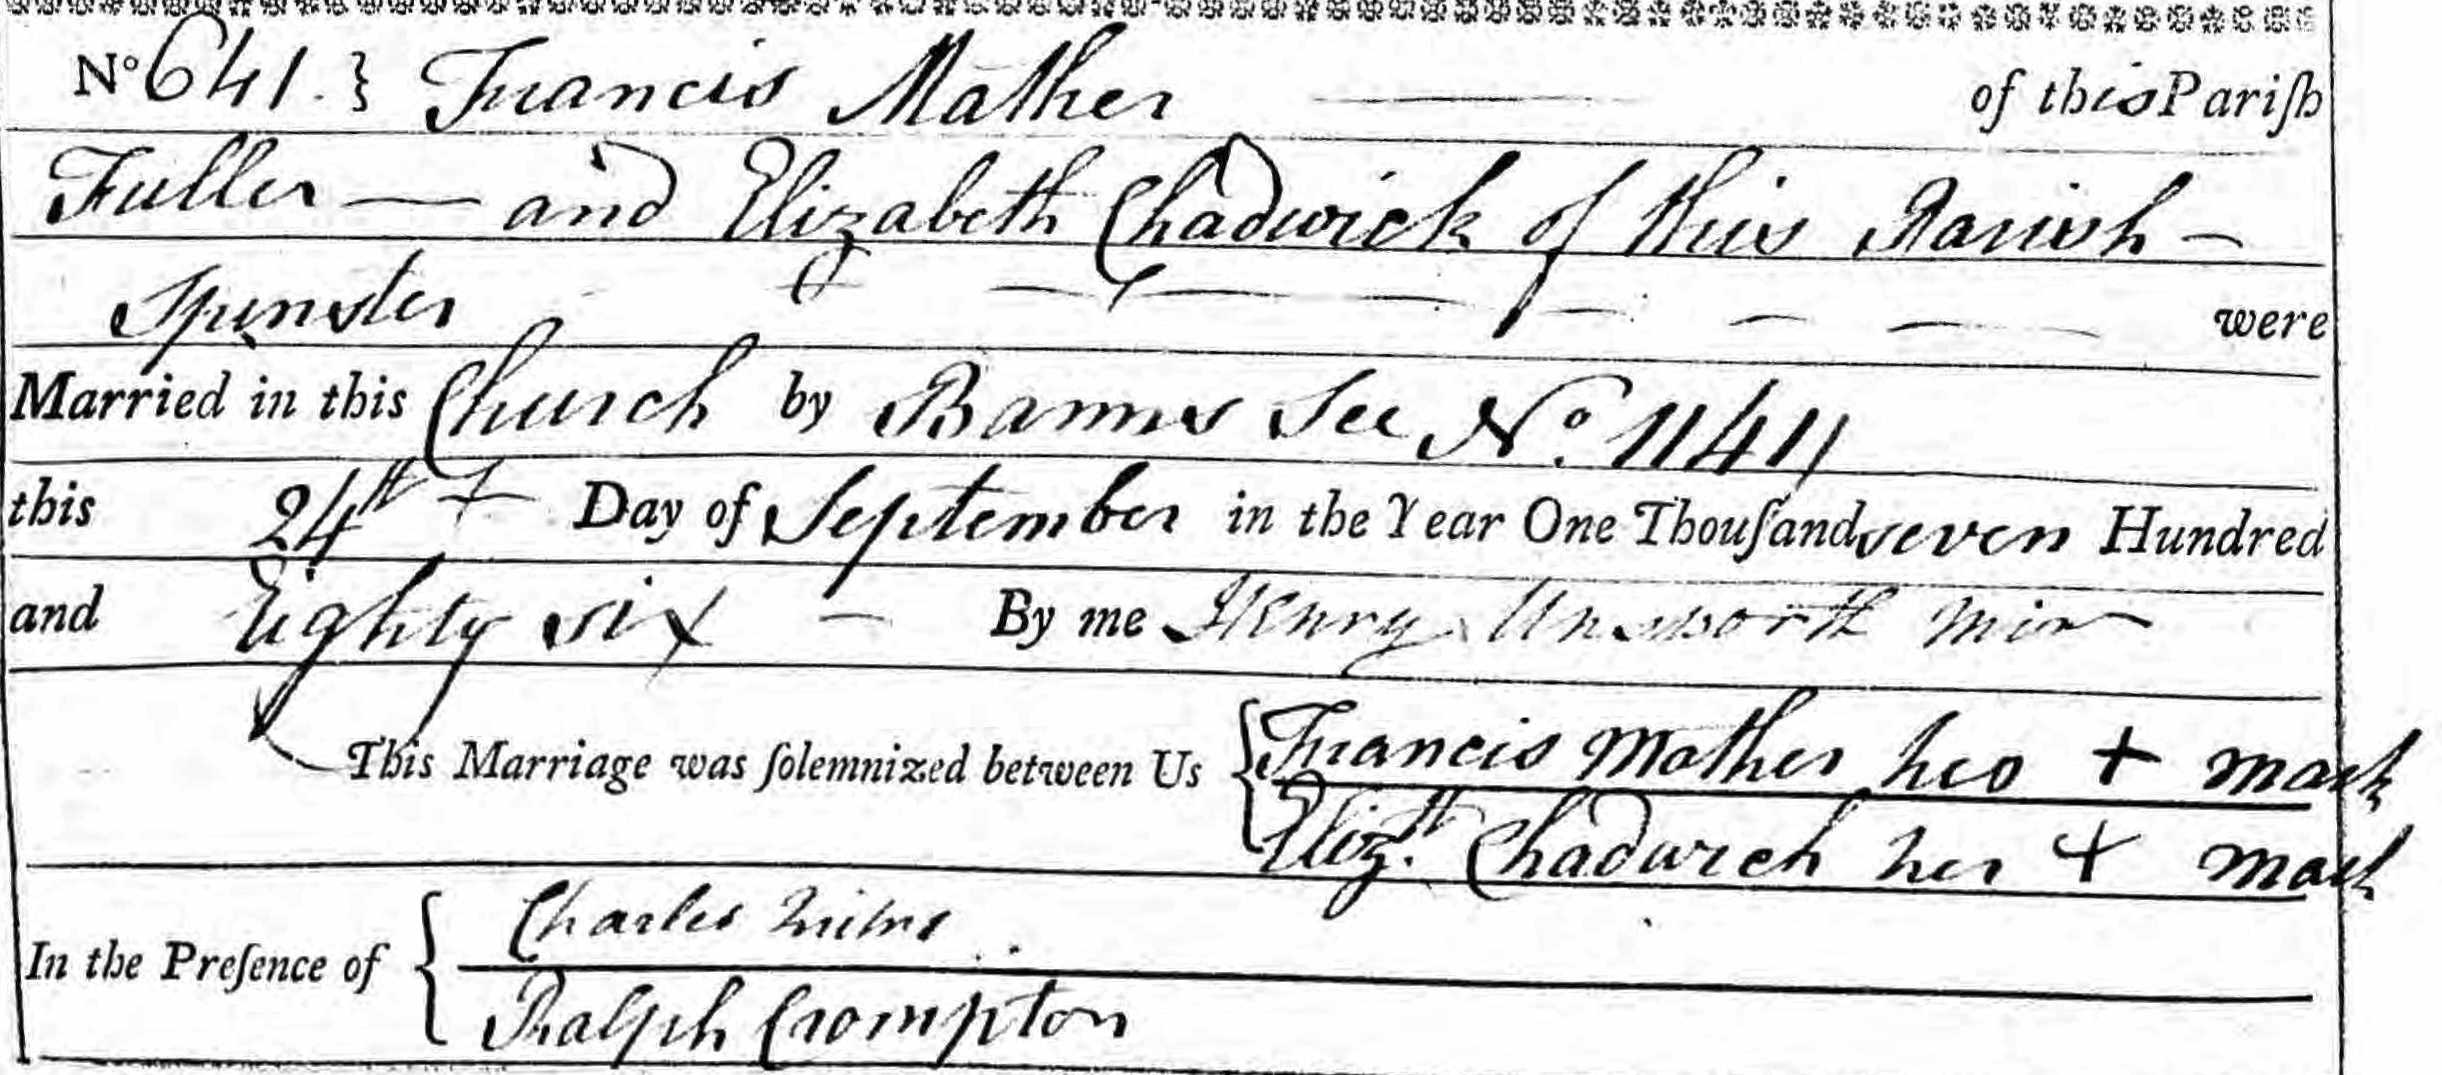 No 641. } Francis Mather of this Pariſh
Fuller — and Elizabeth Chadwick of this Parish —
Spinster were
Married in this Church by Banns See No. 1141
this 24th Day of September in the Year One Thouſand seven Hundred
and Eighty six — By me Henry Unsworth Minr
This Marriage was ſolemnized between Us { Francis Mather his + mark
Elizth. Chadwick her + mark
In the Preſence of { Charles
Ralph Crompton